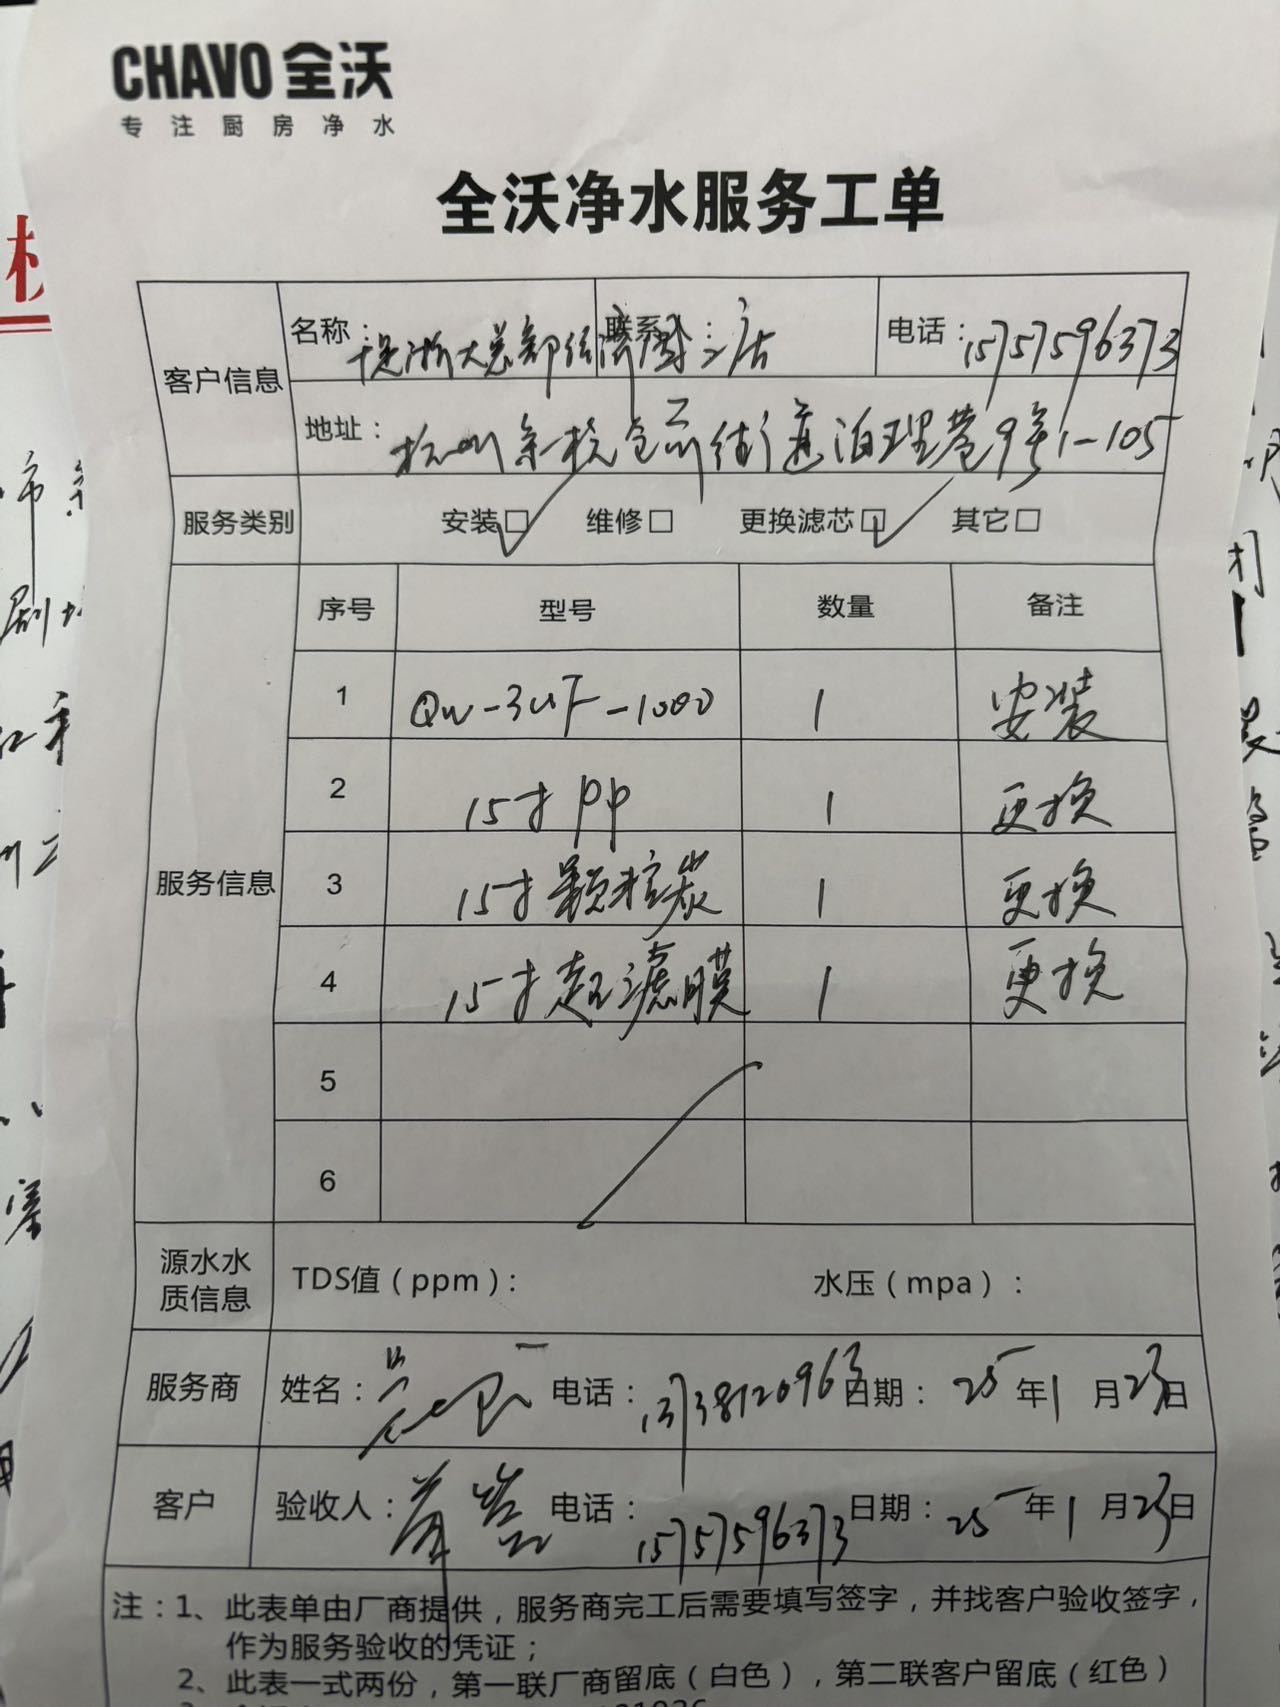 CHAVO 全沃
专注厨房净水
全沃净水服务工单
客户信息
名称： 浙大总部经济园二店 联系人： 电话：15757596373
地址：杭州余杭仓前街道泊理巷9号1-105
服务类别 安装☑ 维修□ 更换滤芯☑ 其它□
服务信息
序号 型号 数量 备注
1 QW-3UF-1000 1 安装
2 15寸PP 1 更换
3 15寸颗粒炭 1 更换
4 15寸超滤膜 1 更换
5
6
源水水质信息 TDS值（ppm）： 水压（mpa）：
服务商 姓名： 电话：13738120963 日期：25年1月23日
客户 验收人： 电话：15757596373 日期：25年1月23日
注：1、此表单由厂商提供，服务商完工后需要填写签字，并找客户验收签字，
作为服务验收的凭证；
2、此表一式两份，第一联厂商留底（白色），第二联客户留底（红色）